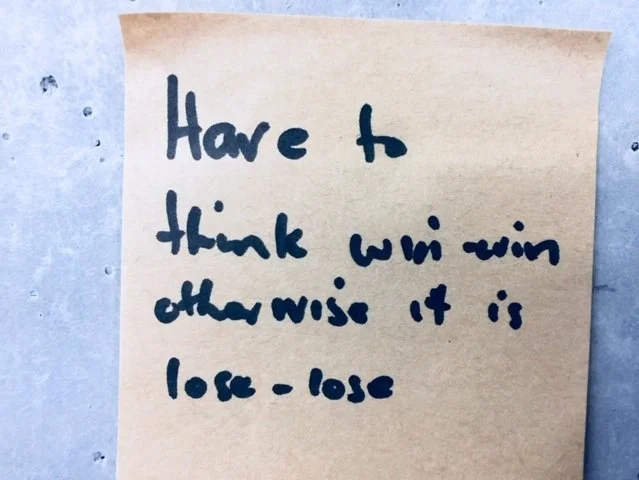 Have to
think win-win
otherwise it is
lose-lose